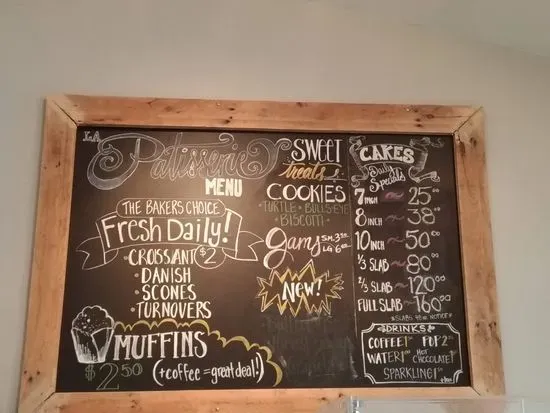 LA
Patisserie
MENU
THE BAKERS CHOICE
Fresh Daily!
• CROISSANT $2
• DANISH
• SCONES
• TURNOVERS
MUFFINS
$2.50
(+coffee = great deal!)
SWEET
treats
COOKIES
• TURTLE • BULLS-EYE
• BISCOTTI •
Jams SM. 3.50
LG 6.00
New!
CAKES
Daily Specials
7 INCH ~ 25.00
8 INCH ~ 38.00
10 INCH ~ 50.00
1/3 SLAB ~ 80.00
2/3 SLAB ~ 120.00
FULL SLAB ~ 160.00
*SLABS 48 HR NOTICE*
DRINKS
COFFEE! POP 2
WATER HOT
CHOCOLATE!
SPARKLING!